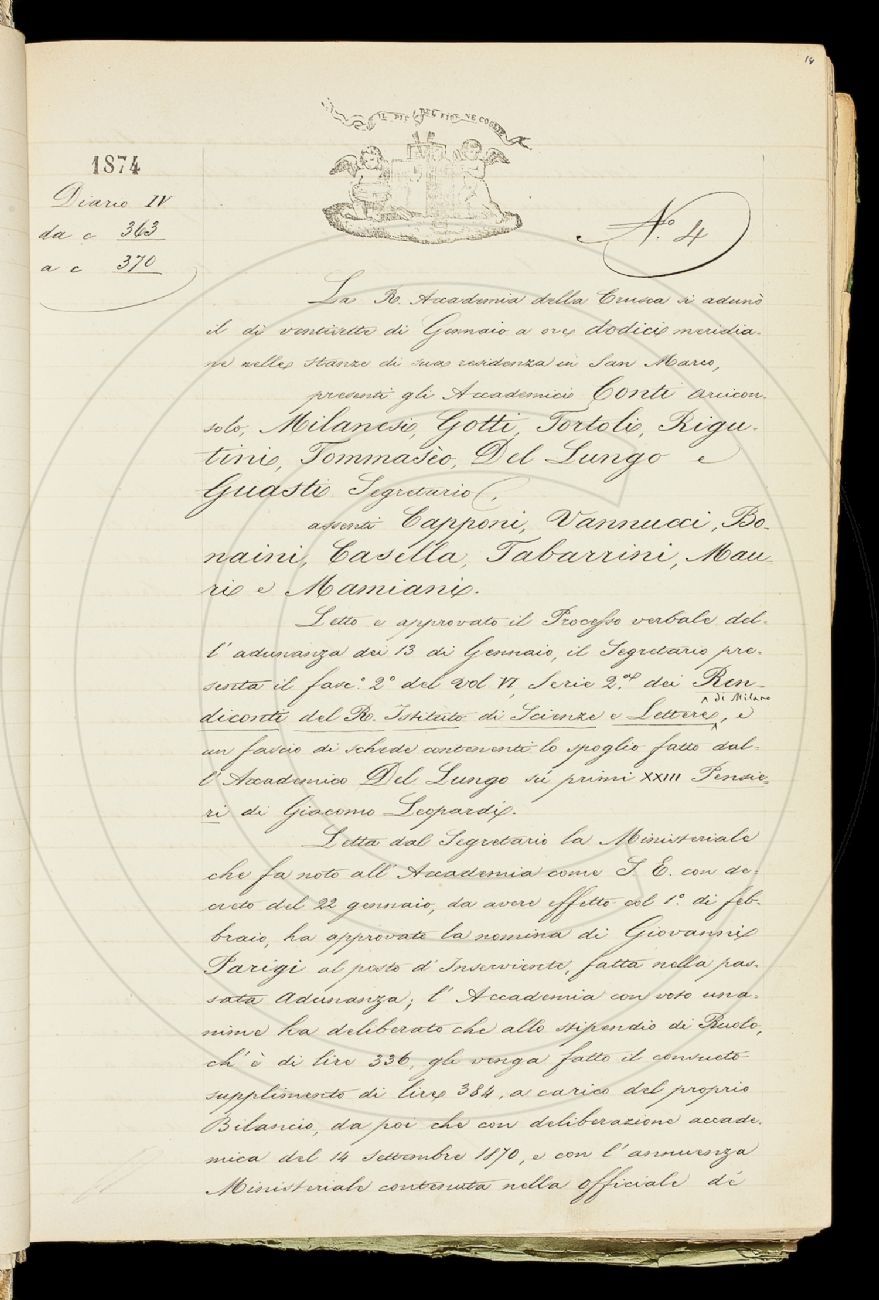 14
IL PIÙ BEL FIOR NE COGLIE
1874
Diario IV
da c 363
a c 370
N.º 4
La R. Accademia della Crusca si adunò
il dì ventisette di Gennaio a ore dodici meridia-
ne nelle stanze di sua residenza in San Marco,
presenti gli Accademici Conti arcicon-
solo, Milanesi, Gotti, Tortoli, Rigu-
tini, Tommasèo, Del Lungo e
Guasti Segretario,
assenti Capponi, Vannucci, Bo-
naini, Casella, Tabarrini, Mau-
ri e Mamiani.
Letto e approvato il Processo verbale del-
l' adunanza dei 13 di Gennaio, il Segretario pre-
senta il fasc.º 2º del vol VI, Serie 2.ª dei Ren-
diconti del R. Istituto di Scienze e Lettere, e
^ di Milano
un fascio di schede contenenti lo spoglio fatto dal-
l' Accademico Del Lungo su' primi XXIII Pensie-
ri di Giacomo Leopardi.
Letta dal Segretario la Ministeriale
che fa noto all' Accademia come S. E. con de-
creto del 22 gennaio, da avere effetto col 1º. di feb-
braio, ha approvato la nomina di Giovanni
Parigi al posto d' Inserviente, fatta nella pas-
sata Adunanza; l' Accademia con voto una-
nime ha deliberato che allo stipendio di Ruolo,
ch' è di lire 336, gli venga fatto il consueto
supplimento di lire 384, a carico del proprio
Bilancio, da poi che con deliberazione accade-
mica del 14 Settembre 1870, e con l' annuenza
Ministeriale contenuta nella officiale de'